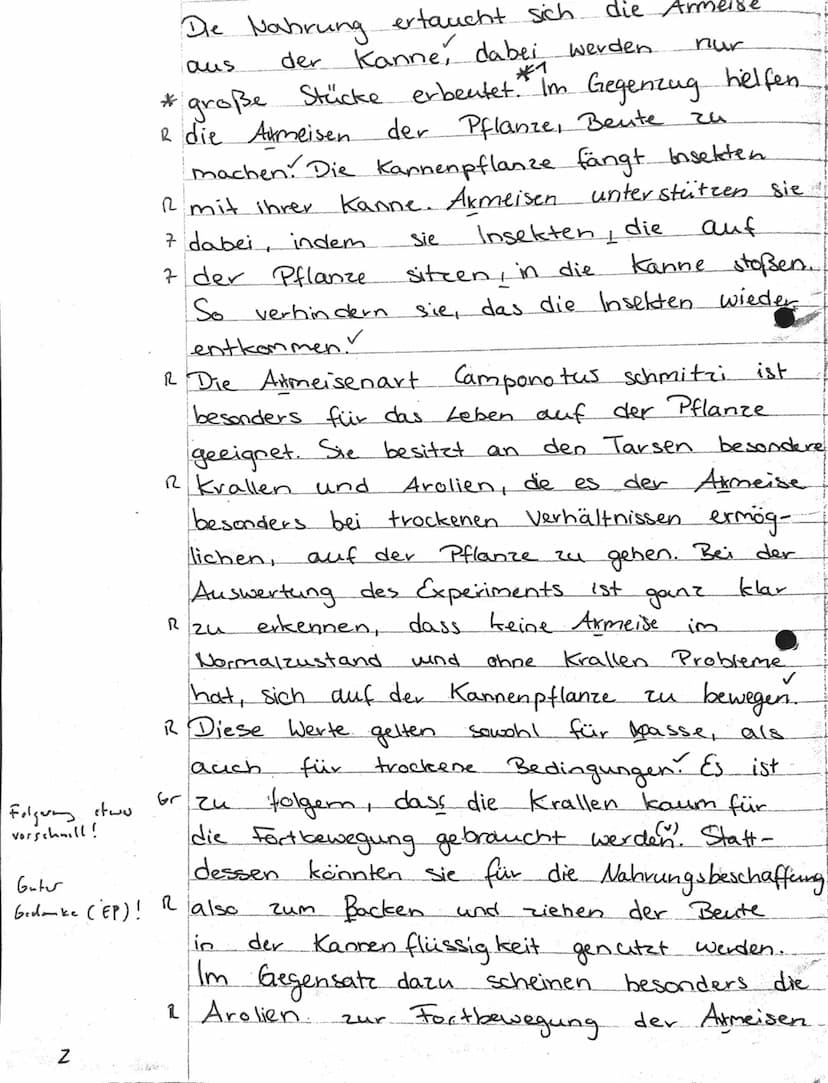 Die Nahrung ertaucht sich die Armeise
aus der Kanne✓, dabei werden nur
* große Stücke erbeutet.*1 Im Gegenzug helfen
R die Armeisen der Pflanze, Beute zu
machen.✓ Die Kannenpflanze fängt Insekten
R mit ihrer Kanne. Armeisen unterstützen sie
7 dabei, indem sie Insekten, die auf
7 der Pflanze sitzen, in die Kanne stoßen.
So verhindern sie, das die Insekten wieder
entkommen.✓
R Die Armeisenart Camponotus schmitzi ist
besonders für das Leben auf der Pflanze
geeignet. Sie besitzt an den Tarsen besondere
R Krallen und Arolien, die es der Armeise
besonders bei trockenen Verhältnissen ermög-
lichen, auf der Pflanze zu gehen. Bei der
Auswertung des Experiments ist ganz klar
R zu erkennen, dass keine Armeise im
Normalzustand und ohne Krallen Probleme
hat, sich auf der Kannenpflanze zu bewegen.✓
R Diese Werte gelten sowohl für Nasse, als
auch für trockene Bedingungen.✓ Es ist
Gr zu folgern, dass die Krallen kaum für
Folgerung etwas
vorschnell!
die Fortbewegung gebraucht werden.(✓) Statt-
dessen könnten sie für die Nahrungsbeschaffung
Guter
Gedanke (EP)!
R also zum Packen und ziehen der Beute
in der Kannenflüssigkeit genutzt werden.
Im Gegensatz dazu scheinen besonders die
R Arolien zur Fortbewegung der Armeisen
2